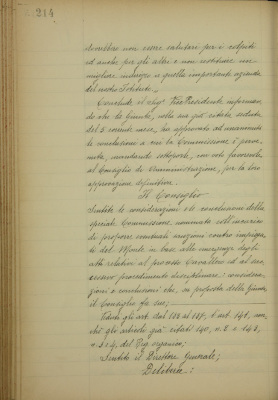 214
dovrebbe non essere salutari per i colpiti
ed anche per gli altri e non restituire un
miglior indirizzo a quella importante azienda
del nostro Istituto.
Conclude il Sig. Vice Presidente informan-
do che la Giunta, nella sua seduta
del 5 corrente mese, ha approvato ad unanimità
le conclusioni a cui la Commissione è perve-
nuta, mandando sottoporle, con voto favorevole,
al Consiglio di Amministrazione, per la sua
approvazione definitiva.
Il Consiglio
Sentite le considerazioni e le conclusioni della
speciale Commissione nominata coll'incarico
di proporre eventuali sanzioni contro impiega-
ti del Monte in base alle emergenze degli
atti relativi al processo Cavallero ed al suc-
cessivo procedimento disciplinare; considerazio-
ni e conclusioni che, su proposta della Giunta
il Consiglio fa sue;
Veduti gli art. dal 183 al 187, l'art. 141, non
chè gli articoli già citati 140, n. 2 e 143,
n. 3 e 4, del Reg. organico;
Sentito il Direttore Generale;
Delibera: